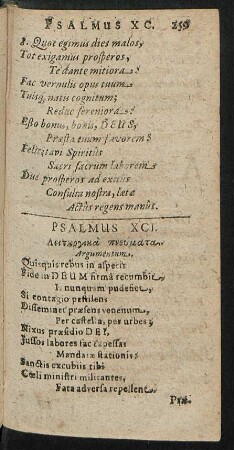 PSALMUS XC. 259
8. Quot egimus dies malos,
Tot exigamus prosperos,
Te dante mitiora:
Fac vernulis opus tuum
Tuisq, natis cognitum;
Reduc sereniora:
Esto bonus, bonis, DEUS,
Præsta tuum favorem:
Felicitavi Spiritûs
Sacri sacrum laborem
Duc prosperos ad exitus
Consulta nostra, læta
Actus regens manûs.
PSALMUS XCI.
Λειτυργικὰ πνεύματα.
Argumentum.
Quisquis rebus in asperis
Fide in DEUM firmâ recumbit,
I. nunquam pudefiet,
Si contagio pestilens
Disseminet præsens venenum,
Per castella, per urbes;
Nixus præsidio DEI,
Jussos labores fac capessas
Mandatæ stationis:
Sanctis excubiis tibi
Cœli ministri militantes,
Fata adversa repellent.